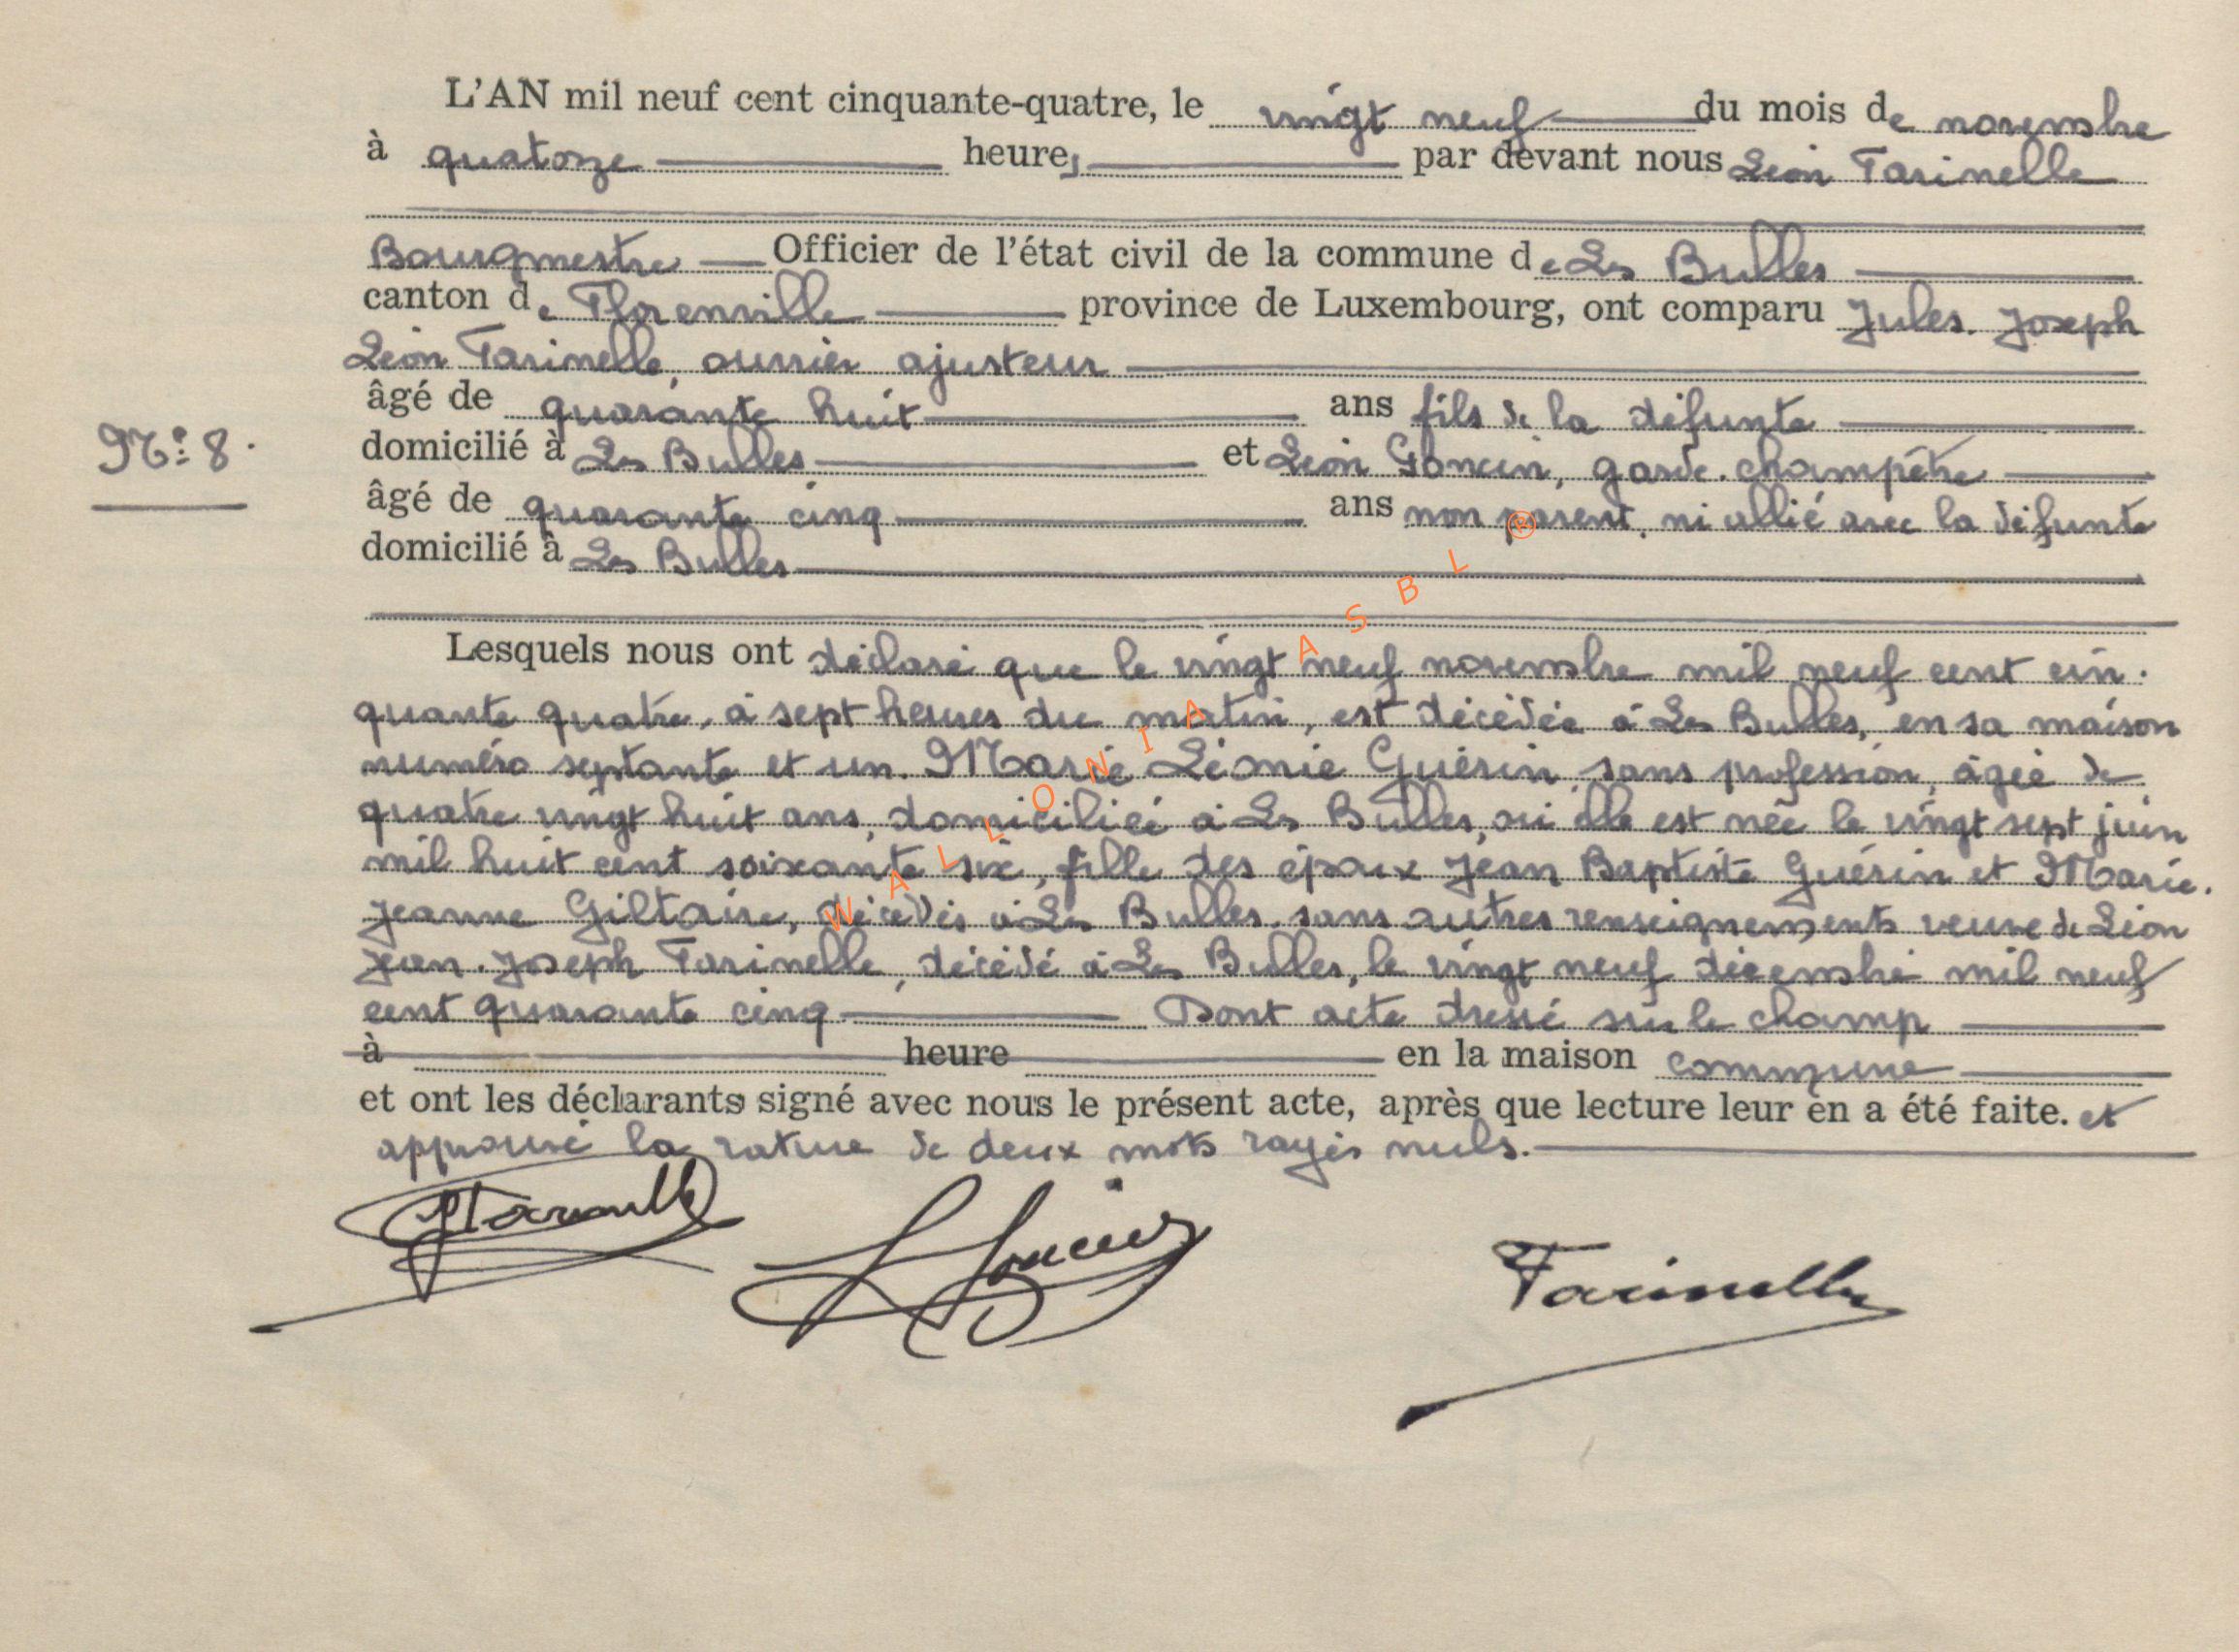 L'AN mil neuf cent cinquante-quatre, le vingt neuf du mois de novembre
à quatorze heures par devant nous Léon Farinelle
Bourgmestre Officier de l'état civil de la commune de Les Bulles
canton de Florenville province de Luxembourg, ont comparu Jules. Joseph
Léon Farinelle, ouvrier ajusteur
âgé de quarante huit ans fils de la défunte
N° 8.
domicilié à Les Bulles et Léon Goncin, garde. champêtre
âgé de quarante cinq ans non parent, ni allié avec la défunte
domicilié à Les Bulles
Lesquels nous ont déclaré que le vingt neuf novembre mil neuf cent cin.
quante quatre, à sept heures du matin, est décédée à Les Bulles, en sa maison
numéro septante et un. Marie Léonie Guérin, sans profession, âgée de
quatre vingt huit ans, domiciliée à Les Bulles, où elle est née le vingt sept juin
mil huit cent soixante six, fille des époux Jean Baptiste Guérin et Marie.
Jeanne Giltaire, décédés à Les Bulles, sans autres renseignements veuve de Léon
Jean. Joseph Farinelle, décédé à Les Bulles, le vingt neuf décembre mil neuf
cent quarante cinq Dont acte dressé sur le champ
à heure en la maison commune
et ont les déclarants signé avec nous le présent acte, après que lecture leur en a été faite. et
approuvé la rature de deux mots rayés nuls.
Farinelle
WALLONIA ASBL ®